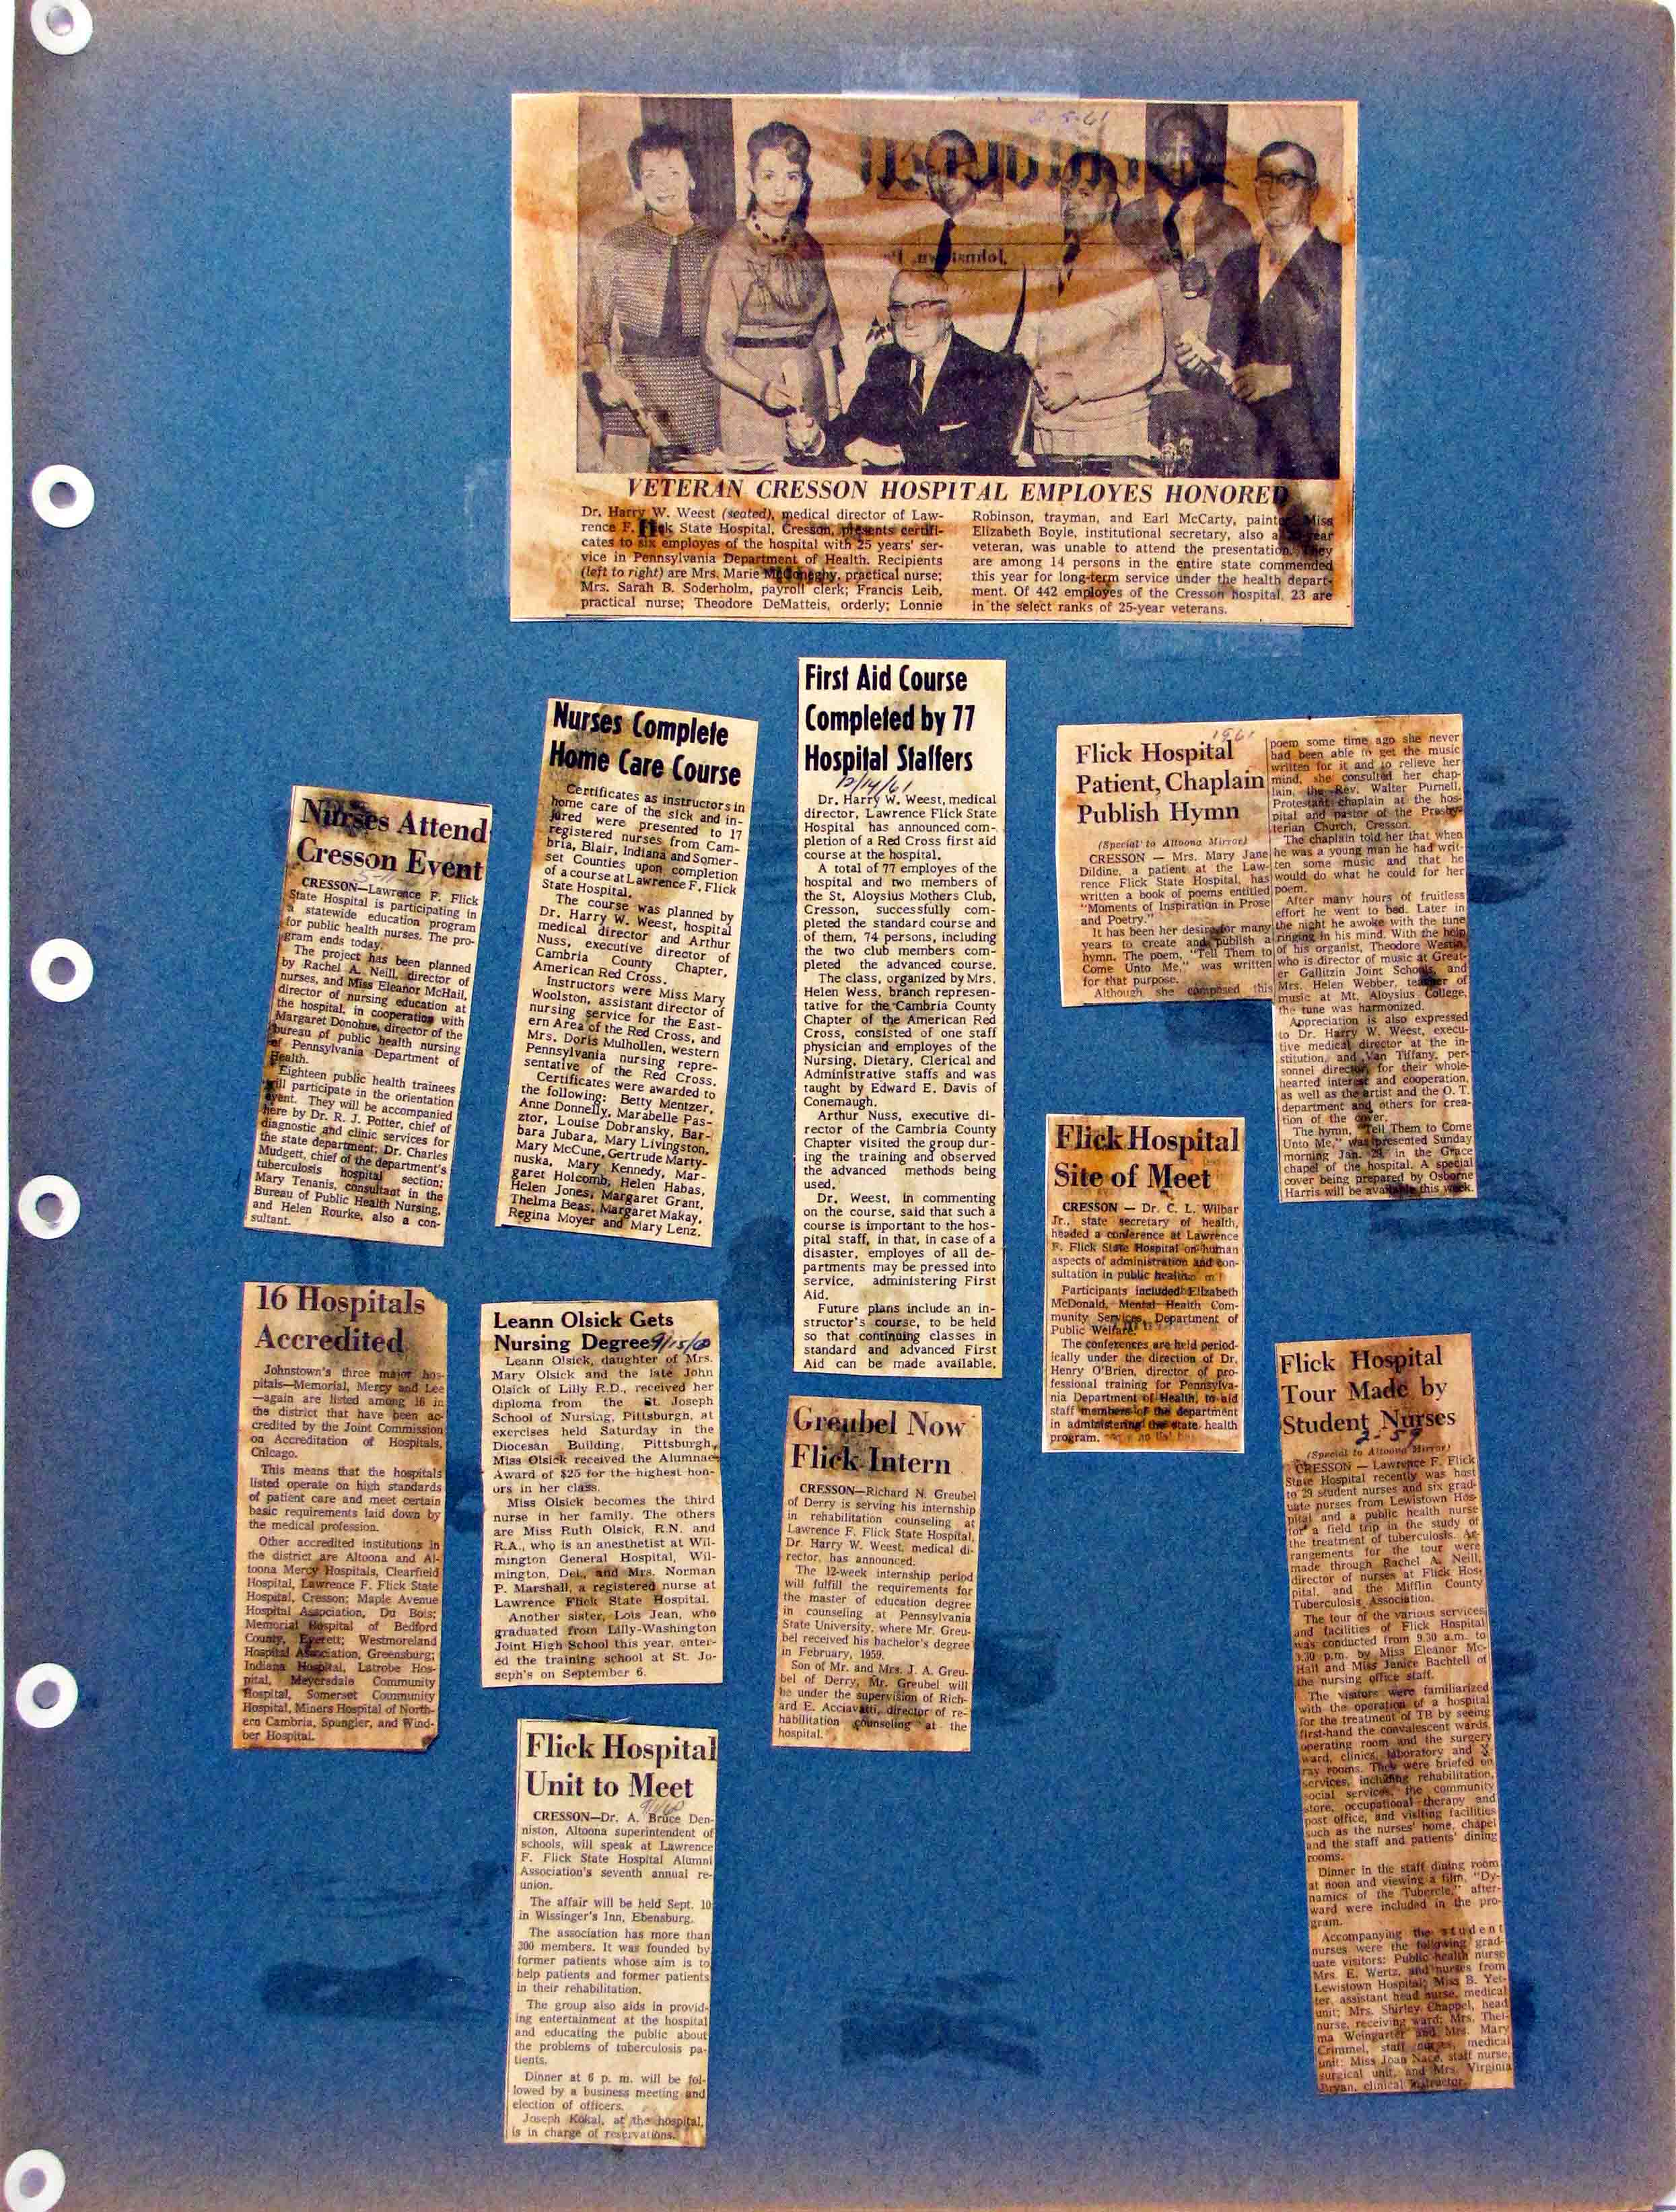 2-5-61
VETERAN CRESSON HOSPITAL EMPLOYES HONORED
Dr. Harry W. Weest (seated), medical director of Law-
rence F. Flick State Hospital, Cresson, presents certifi-
cates to six employes of the hospital with 25 years' ser-
vice in Pennsylvania Department of Health. Recipients
(left to right) are Mrs. Marie practical nurse;
Mrs. Sarah B. Soderholm, payroll clerk; Francis Leib,
practical nurse; Theodore DeMatteis, orderly; Lonnie
Robinson, trayman, and Earl McCarty, painter. Miss
Elizabeth Boyle, institutional secretary, also a year
veteran, was unable to attend the presentation. They
are among 14 persons in the entire state commended
this year for long-term service under the health depart-
ment. Of 442 employes of the Cresson hospital, 23 are
in the select ranks of 25-year veterans.
Nurses Attend
Cresson Event
CRESSON—Lawrence F. Flick
State Hospital is participating in
a statewide education program
for public health nurses. The pro-
gram ends today.
The project has been planned
by Rachel A. Neill, director of
nurses, and Miss Eleanor McHail,
director of nursing education at
the hospital, in cooperation with
Margaret Donohue, director of the
bureau of public health nursing
of Pennsylvania Department of
Health.
Eighteen public health trainees
will participate in the orientation
event. They will be accompanied
here by Dr. R. J. Potter, chief of
diagnostic and clinic services for
the state department; Dr. Charles
Mudgett, chief of the department's
tuberculosis hospital section;
Mary Tenanis, consultant in the
Bureau of Public Health Nursing,
and Helen Rourke, also a con-
sultant.
Nurses Complete
Home Care Course
Certificates as instructors in
home care of the sick and in-
jured were presented to 17
registered nurses from Cam-
bria, Blair, Indiana and Somer-
set Counties upon completion
of a course at Lawrence F. Flick
State Hospital.
The course was planned by
Dr. Harry W. Weest, hospital
medical director and Arthur
Nuss, executive director of
Cambria County Chapter,
American Red Cross.
Instructors were Miss Mary
Woolston, assistant director of
nursing service for the East-
ern Area of the Red Cross, and
Mrs. Doris Mulhollen, western
Pennsylvania nursing repre-
sentative of the Red Cross.
Certificates were awarded to
the following: Betty Mentzer,
Anne Donnelly, Marabelle Pas-
ztor, Louise Dobransky, Bar-
bara Jubara, Mary Livingston,
Mary McCune, Gertrude Marty-
nuska, Mary Kennedy, Mar-
garet Holcomb, Helen Habas,
Helen Jones, Margaret Grant,
Thelma Beas, Margaret Makay,
Regina Moyer and Mary Lenz.
First Aid Course
Completed by 77
Hospital Staffers
12/14/61
Dr. Harry W. Weest, medical
director, Lawrence Flick State
Hospital has announced com-
pletion of a Red Cross first aid
course at the hospital.
A total of 77 employes of the
hospital and two members of
the St. Aloysius Mothers Club,
Cresson, successfully com-
pleted the standard course and
of them, 74 persons, including
the two club members com-
pleted the advanced course.
The class, organized by Mrs.
Helen Wess, branch represen-
tative for the Cambria County
Chapter of the American Red
Cross, consisted of one staff
physician and employes of the
Nursing, Dietary, Clerical and
Administrative staffs and was
taught by Edward E. Davis of
Conemaugh.
Arthur Nuss, executive di-
rector of the Cambria County
Chapter visited the group dur-
ing the training and observed
the advanced methods being
used.
Dr. Weest, in commenting
on the course, said that such a
course is important to the hos-
pital staff, in that, in case of a
disaster, employes of all de-
partments may be pressed into
service, administering First
Aid.
Future plans include an in-
structor's course, to be held
so that continuing classes in
standard and advanced First
Aid can be made available.
Flick Hospital
1961
Patient, Chaplain
Publish Hymn
(Special to Altoona Mirror)
CRESSON — Mrs. Mary Jane
Dildine, a patient at the Law-
rence Flick State Hospital, has
written a book of poems entitled
"Moments of Inspiration in Prose
and Poetry."
It has been her desire for many
years to create and publish a
hymn. The poem, "Tell Them to
Come Unto Me," was written
for that purpose.
Although she composed this
poem some time ago she never
had been able to get the music
written for it and to relieve her
mind, she consulted her chap-
lain, the Rev. Walter Purnell,
Protestant chaplain at the hos-
pital and pastor of the Presby-
terian Church, Cresson.
The chaplain told her that when
he was a young man he had writ-
ten some music and that he
would do what he could for her
poem.
After many hours of fruitless
effort he went to bed. Later in
the night he awoke with the tune
ringing in his mind. With the help
of his organist, Theodore Westin,
who is director of music at Great-
er Gallitzin Joint Schools, and
Mrs. Helen Webber, teacher of
music at Mt. Aloysius College,
the tune was harmonized.
Appreciation is also expressed
to Dr. Harry W. Weest, execu-
tive medical director at the in-
stitution, and Van Tiffany, per-
sonnel director, for their whole-
hearted interest and cooperation,
as well as the artist and the O. T.
department and others for crea-
tion of the cover.
The hymn, "Tell Them to Come
Unto Me," was presented Sunday
morning Jan. 29, in the Grace
chapel of the hospital. A special
cover being prepared by Osborne
Harris will be available this week.
Flick Hospital
Site of Meet
CRESSON — Dr. C. L. Wilbar
Jr., state secretary of health,
headed a conference at Lawrence
F. Flick State Hospital on human
aspects of administration and con-
sultation in public health.
Participants included Elizabeth
McDonald, Mental Health Com-
munity Services, Department of
Public Welfare.
The conferences are held period-
ically under the direction of Dr.
Henry O'Brien, director of pro-
fessional training for Pennsylva-
nia Department of Health, to aid
staff members of the department
in administering the state health
program.
16 Hospitals
Accredited
Johnstown's three major hos-
pitals—Memorial, Mercy and Lee
—again are listed among 16 in
the district that have been ac-
credited by the Joint Commission
on Accreditation of Hospitals,
Chicago.
This means that the hospitals
listed operate on high standards
of patient care and meet certain
basic requirements laid down by
the medical profession.
Other accredited institutions in
the district are Altoona and Al-
toona Mercy Hospitals, Clearfield
Hospital, Lawrence F. Flick State
Hospital, Cresson; Maple Avenue
Hospital Association, Du Bois;
Memorial Hospital of Bedford
County, Everett; Westmoreland
Hospital Association, Greensburg;
Indiana Hospital, Latrobe Hos-
pital, Meyersdale Community
Hospital, Somerset Community
Hospital, Miners Hospital of North-
ern Cambria, Spangler, and Wind-
ber Hospital.
Leann Olsick Gets
Nursing Degree 9/15/60
Leann Olsick, daughter of Mrs.
Mary Olsick and the late John
Olsick of Lilly R.D., received her
diploma from the St. Joseph
School of Nursing, Pittsburgh, at
exercises held Saturday in the
Diocesan Building, Pittsburgh.
Miss Olsick received the Alumnae
Award of $25 for the highest hon-
ors in her class.
Miss Olsick becomes the third
nurse in her family. The others
are Miss Ruth Olsick, R.N. and
R.A., who is an anesthetist at Wil-
mington General Hospital, Wil-
mington, Del., and Mrs. Norman
P. Marshall, a registered nurse at
Lawrence Flick State Hospital.
Another sister, Lois Jean, who
graduated from Lilly-Washington
Joint High School this year, enter-
ed the training school at St. Jo-
seph's on September 6.
Greubel Now
Flick Intern
CRESSON—Richard N. Greubel
of Derry is serving his internship
in rehabilitation counseling at
Lawrence F. Flick State Hospital,
Dr. Harry W. Weest, medical di-
rector, has announced.
The 12-week internship period
will fulfill the requirements for
the master of education degree
in counseling at Pennsylvania
State University, where Mr. Greu-
bel received his bachelor's degree
in February, 1959.
Son of Mr. and Mrs. J. A. Greu-
bel of Derry, Mr. Greubel will
be under the supervision of Rich-
ard E. Acciavatti, director of re-
habilitation counseling at the
hospital.
Flick Hospital
Tour Made by
Student Nurses
2-59
(Special to Altoona Mirror)
CRESSON — Lawrence F. Flick
State Hospital recently was host
to 29 student nurses and six grad-
uate nurses from Lewistown Hos-
pital and a public health nurse
for a field trip in the study of
the treatment of tuberculosis. Ar-
rangements for the tour were
made through Rachel A. Neill,
director of nurses at Flick Hos-
pital, and the Mifflin County
Tuberculosis Association.
The tour of the various services
and facilities of Flick Hospital
was conducted from 9.30 a.m. to
3.30 p.m. by Miss Eleanor Mc-
Hall and Miss Janice Bachtell of
the nursing office staff.
The visitors were familiarized
with the operation of a hospital
for the treatment of TB by seeing
first-hand the convalescent wards,
operating room and the surgery
ward, clinics, laboratory and X
ray rooms. They were briefed on
services, including rehabilitation,
social services, the community
store, occupational therapy and
post office, and visiting facilities
such as the nurses' home, chapel
and the staff and patients' dining
rooms.
Dinner in the staff dining room
at noon and viewing a film, "Dy-
namics of the Tubercle," after-
ward were included in the pro-
gram.
Accompanying the student
nurses were the following grad-
uate visitors: Public health nurse
Mrs. E. Wertz, and nurses from
Lewistown Hospital; Miss B. Yet-
ter, assistant head nurse, medical
unit; Mrs. Shirley Chappel, head
nurse, receiving ward; Mrs. Thel-
ma Weingarter and Mrs. Mary
Crimmel, staff nurses, medical
unit; Miss Joan Nace, staff nurse,
surgical unit, and Mrs. Virginia
Bryan, clinical instructor.
Flick Hospital
Unit to Meet
CRESSON—Dr. A. Bruce Den-
niston, Altoona superintendent of
schools, will speak at Lawrence
F. Flick State Hospital Alumni
Association's seventh annual re-
union.
The affair will be held Sept. 10
in Wissinger's Inn, Ebensburg.
The association has more than
300 members. It was founded by
former patients whose aim is to
help patients and former patients
in their rehabilitation.
The group also aids in provid-
ing entertainment at the hospital
and educating the public about
the problems of tuberculosis pa-
tients.
Dinner at 6 p. m. will be fol-
lowed by a business meeting and
election of officers.
Joseph Kokal, at the hospital,
is in charge of reservations.